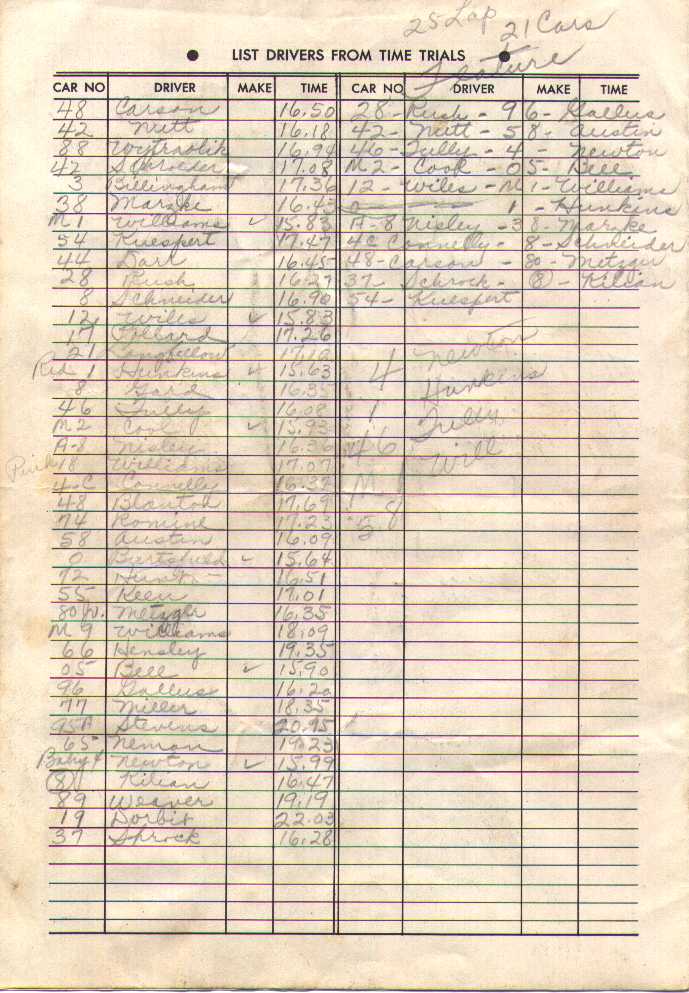 25 Lap 21 Cars
Feature
LIST DRIVERS FROM TIME TRIALS
CAR NO DRIVER MAKE TIME CAR NO DRIVER MAKE TIME
48 Carson 16.50 28 - Rush - 96 - Gallus
42 Nutt 16.18 42 - Nutt - 58 - Austin
88 16.94 46 - Tully - 4 - Newton
42 Schroeder 17.08 M2 - Cook - 05 - Bell
3 Billingham 17.36 12 - Wiles - M1 - Williams
38 Marzke 16.43 0 1 - Hunkins
M1 Williams ✓ 15.83 A-8 Nisley - 38 - Marzke
54 Kuespert 17.47 4C Connelly - 8 - Schneider
44 Dart 16.45 48 - Carson - 80 - Metzger
28 Rush 16.27 37 - Schrock - (8) - Kilian
8 Schneider 16.90 54 - Kuespert
12 Wiles ✓ 15.83
17 Pollard 17.26
21 Longfellow
Red 1 Hunkins ✓ 15.63
8 Gard 16.35
46 Tully 16.08
M2 Cook ✓ 15.93
A-8 Nisley 16.36
Pink 18 Williams 17.07
4-C Connelly 16.37
48 Blanton 17.69
74 Romine 17.23
58 Austin 16.09
0 ✓ 15.64
72 Hunt 16.51
55 Keen 17.01
80 Metzger 16.35
M9 Williams 18.09
66 Hensley 19.35
05 Bell ✓ 15.90
96 Gallus 16.20
77 Miller 18.35
95A Stevens 20.95
65 Nemon 19.23
Baby 4 Newton ✓ 15.99
(8) Kilian 16.47
89 Weaver 19.19
19 Dorbit 22.03
37 Shrock 16.28
4 Newton
1 Hunkins
46 Tully
M1 Will
58